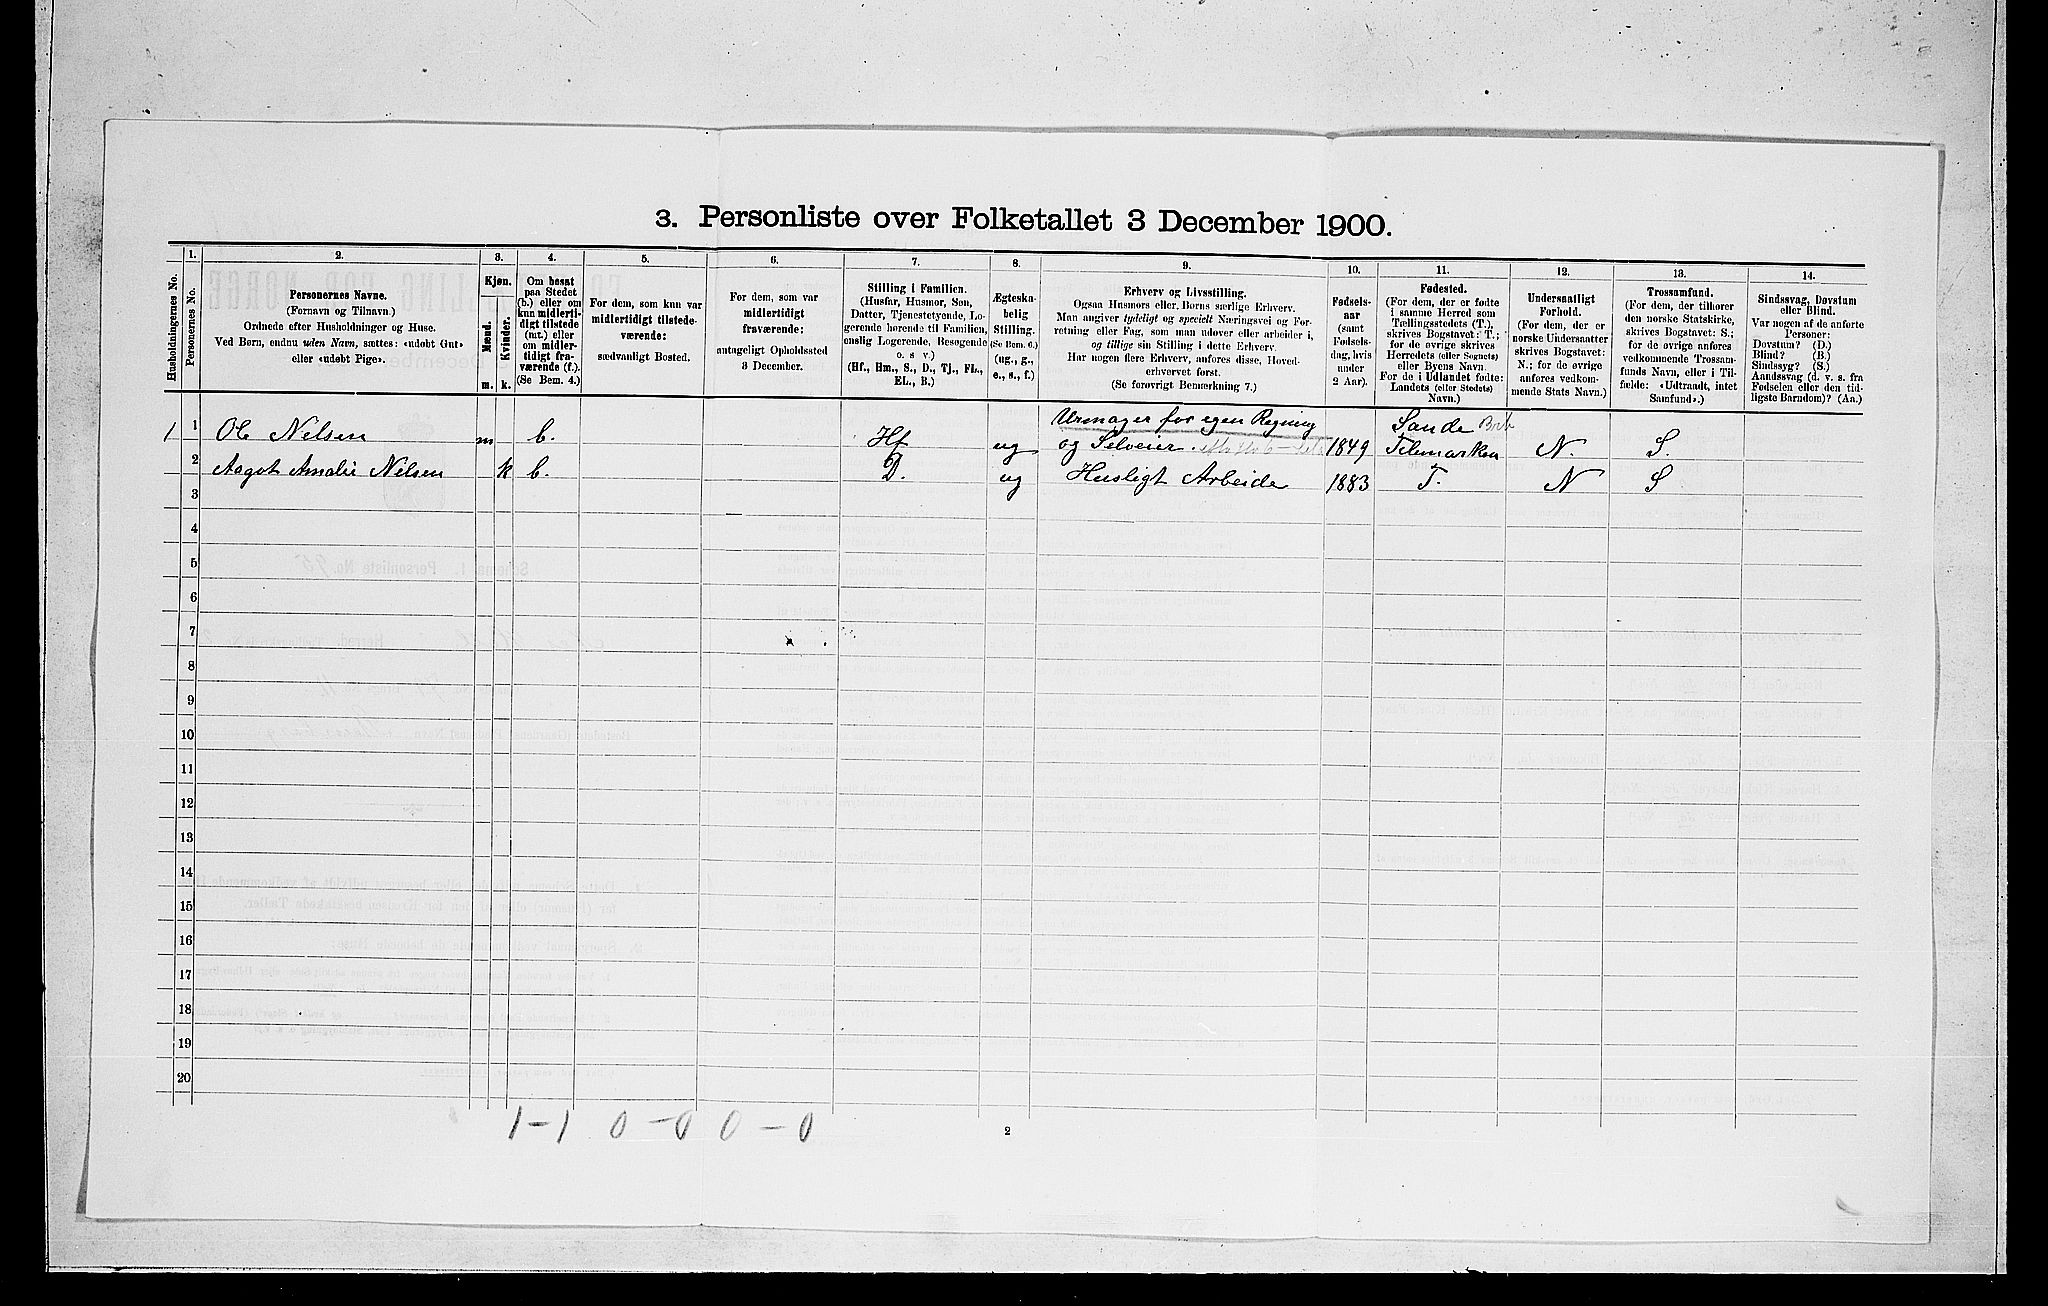 3. Personliste over Folketallet 3 December 1900.
Husholdningernes No.
1.
Personernes No.
2.
Personernes Navne.
(Fornavn og Tilnavn.)
Ordnede efter Husholdninger og Huse.
Ved Børn, endnu uden Navn, sættes: «udøbt Gut»
eller «udøbt Pige».
3.
Kjøn.
Mænd.
m.
Kvinder.
k.
4.
Om bosat
paa Stedet
(b.) eller om
kun midlerti-
digt tilstede
(mt.) eller
om midler-
tidigt fra-
værende (f.).
(Se Bem. 4.)
5.
For dem, som kun var
midlertidigt tilstede-
værende:
sædvanligt Bosted.
6.
For dem, som var
midlertidigt
fraværende:
antageligt Opholdssted
3 December.
7.
Stilling i Familien.
(Husfar, Husmor, Søn,
Datter, Tjenestetyende, Lo-
gerende hørende til Familien,
enslig Logerende, Besøgende
o. s v.)
(Hf., Hm., S., D., Tj., FL.,
EL., B.)
8.
Ægteska-
belig
Stilling.
(Se Bem. 6.)
(ug., g.,
e., s., f.)
9.
Erhverv og Livsstilling.
Ogsaa Husmors eller Børns særlige Erhverv.
Man angiver tydeligt og specielt Næringsvei og For-
retning eller Fag, som man udøver eller arbeider i,
og tillige sin Stilling i dette Erhverv.
Har nogen flere Erhverv, anføres disse, Hoved-
erhvervet først.
(Se forøvrigt Bemerkning 7.)
10.
Fødsels-
aar
(samt
Fødsels-
dag, hvis
under
2 Aar).
11.
Fødested.
(For dem, der er fødte
i samme Herred som
Tællingsstedets (T.),
skrives Bogstavet: T.;
for de øvrige skrives
Herredets (eller Sognets)
eller Byens Navn.
For de i Udlandet fødte:
Landets (eller Stedets)
Navn.)
12.
Undersaatligt
Forhold.
(For dem, der er
norske Undersaatter
skrives Bogstavet:
N.; for de øvrige
anføres vedkom-
mende Stats Navn.)
13.
Trossamfund.
(For dem, der tilhører
den norske Statskirke,
skrives Bogstavet: S.;
for de øvrige anføres
vedkommende Trossam-
funds Navn, eller i Til-
fælde: «Udtraadt, intet
Samfund».)
14.
Sindssvag, Døvstum
eller Blind.
Var nogen af de anførte
Personer:
Døvstum? (D.)
Blind? (B.)
Sindssyg? (S.)
Aandssvag (d. v. s. fra
Fødselen eller den tid-
ligste Barndom)? (Aa.)
1 1 Ole Nelsen m b. Hf ug Urmager for egen Regning
og Selveier. 1849 Sande
Telemarken N. S.
2 Aagot Amalie Nelsen k b. D. ug Husligt Arbeide 1883 T. N S
3
4
5
6
7
8
9
10
11
12
13
14
15
16
17
18
19
20
1-1 0-0 0-0
2